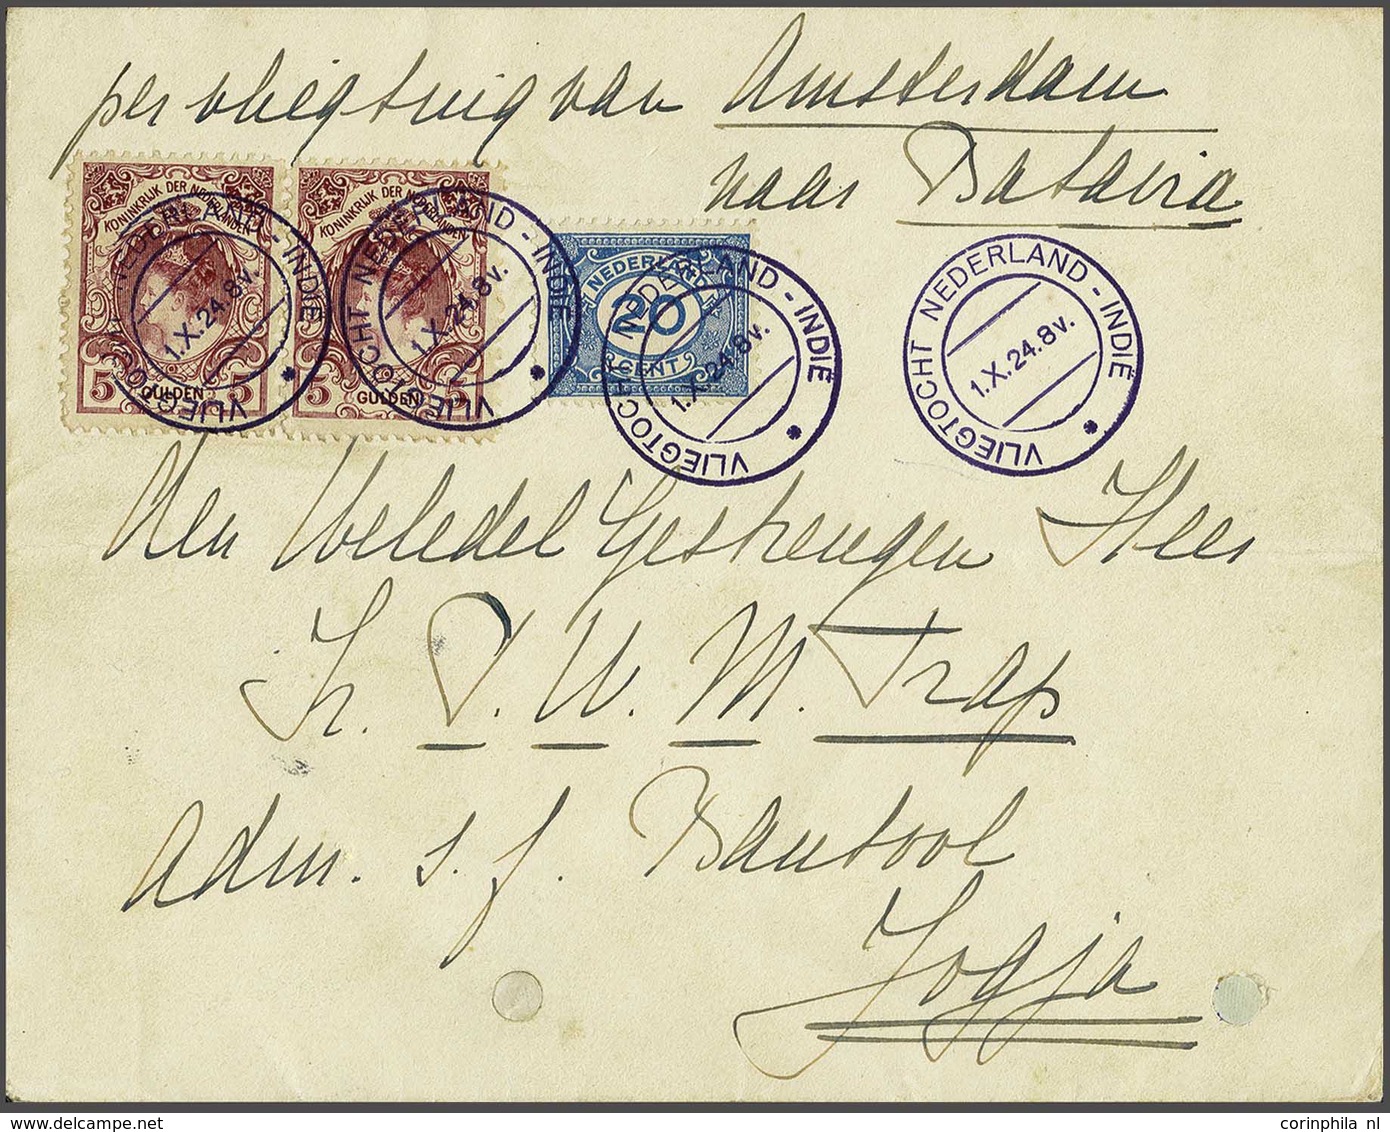 per vliegtuig van Amsterdam
naar Batavia
KONINKRIJK DER NEDERLANDEN
5 GULDEN 5
KONINKRIJK DER NEDERLANDEN
5 GULDEN 5
NEDERLAND
20
CENT
VLIEGTOCHT NEDERLAND - INDIË
1.X.24.8v.
VLIEGTOCHT NEDERLAND - INDIË
1.X.24.8v.
VLIEGTOCHT NEDERLAND - INDIË
1.X.24.8v.
VLIEGTOCHT NEDERLAND - INDIË
1.X.24.8v.
Den WelEdel Gestrengen Heer
Ir. P. W. M. Trap
adm. s. f. Bantool
Jogja
corinphila nl